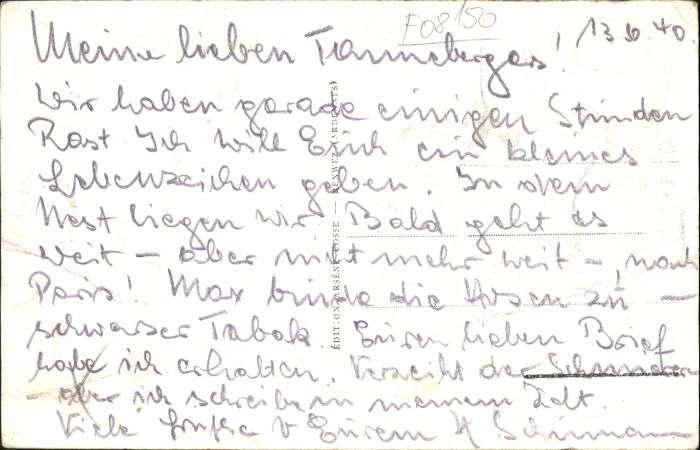 F08/50
Meine lieben Tanneberger! 13 6 40.
Wir haben gerade einigen Stunden
Rast Ich will Euch ein kleines
Lebenzeichen geben. In dem
Nest liegen wir Bald geht es
weit – aber nicht mehr weit –, nach
Paris! Max binde die Hosen zu –
schwarzer Tabak. Euren lieben Brief
habe ich erhalten. Verzeiht der
– aber ich schreibe in meinem Zelt.
Viele Grüße v Eurem H. Schumann
ÉDITION ARSÈNE — RENWEZ (ARDENNES)